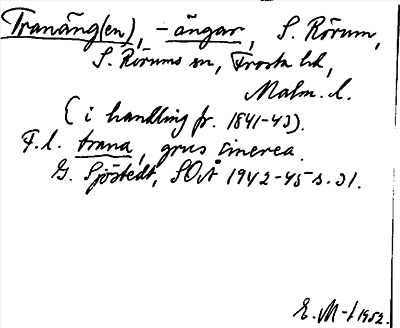 Tranäng(en), -ängar, S. Rörum,
S. Rörums sn, Frosta hd,
Malm. l.
(i handling fr. 1841-43).
F.l. trana, grus cinerea.
G. Sjöstedt, SOÅ 1942-45 s. 31.
E. M-f 1952.